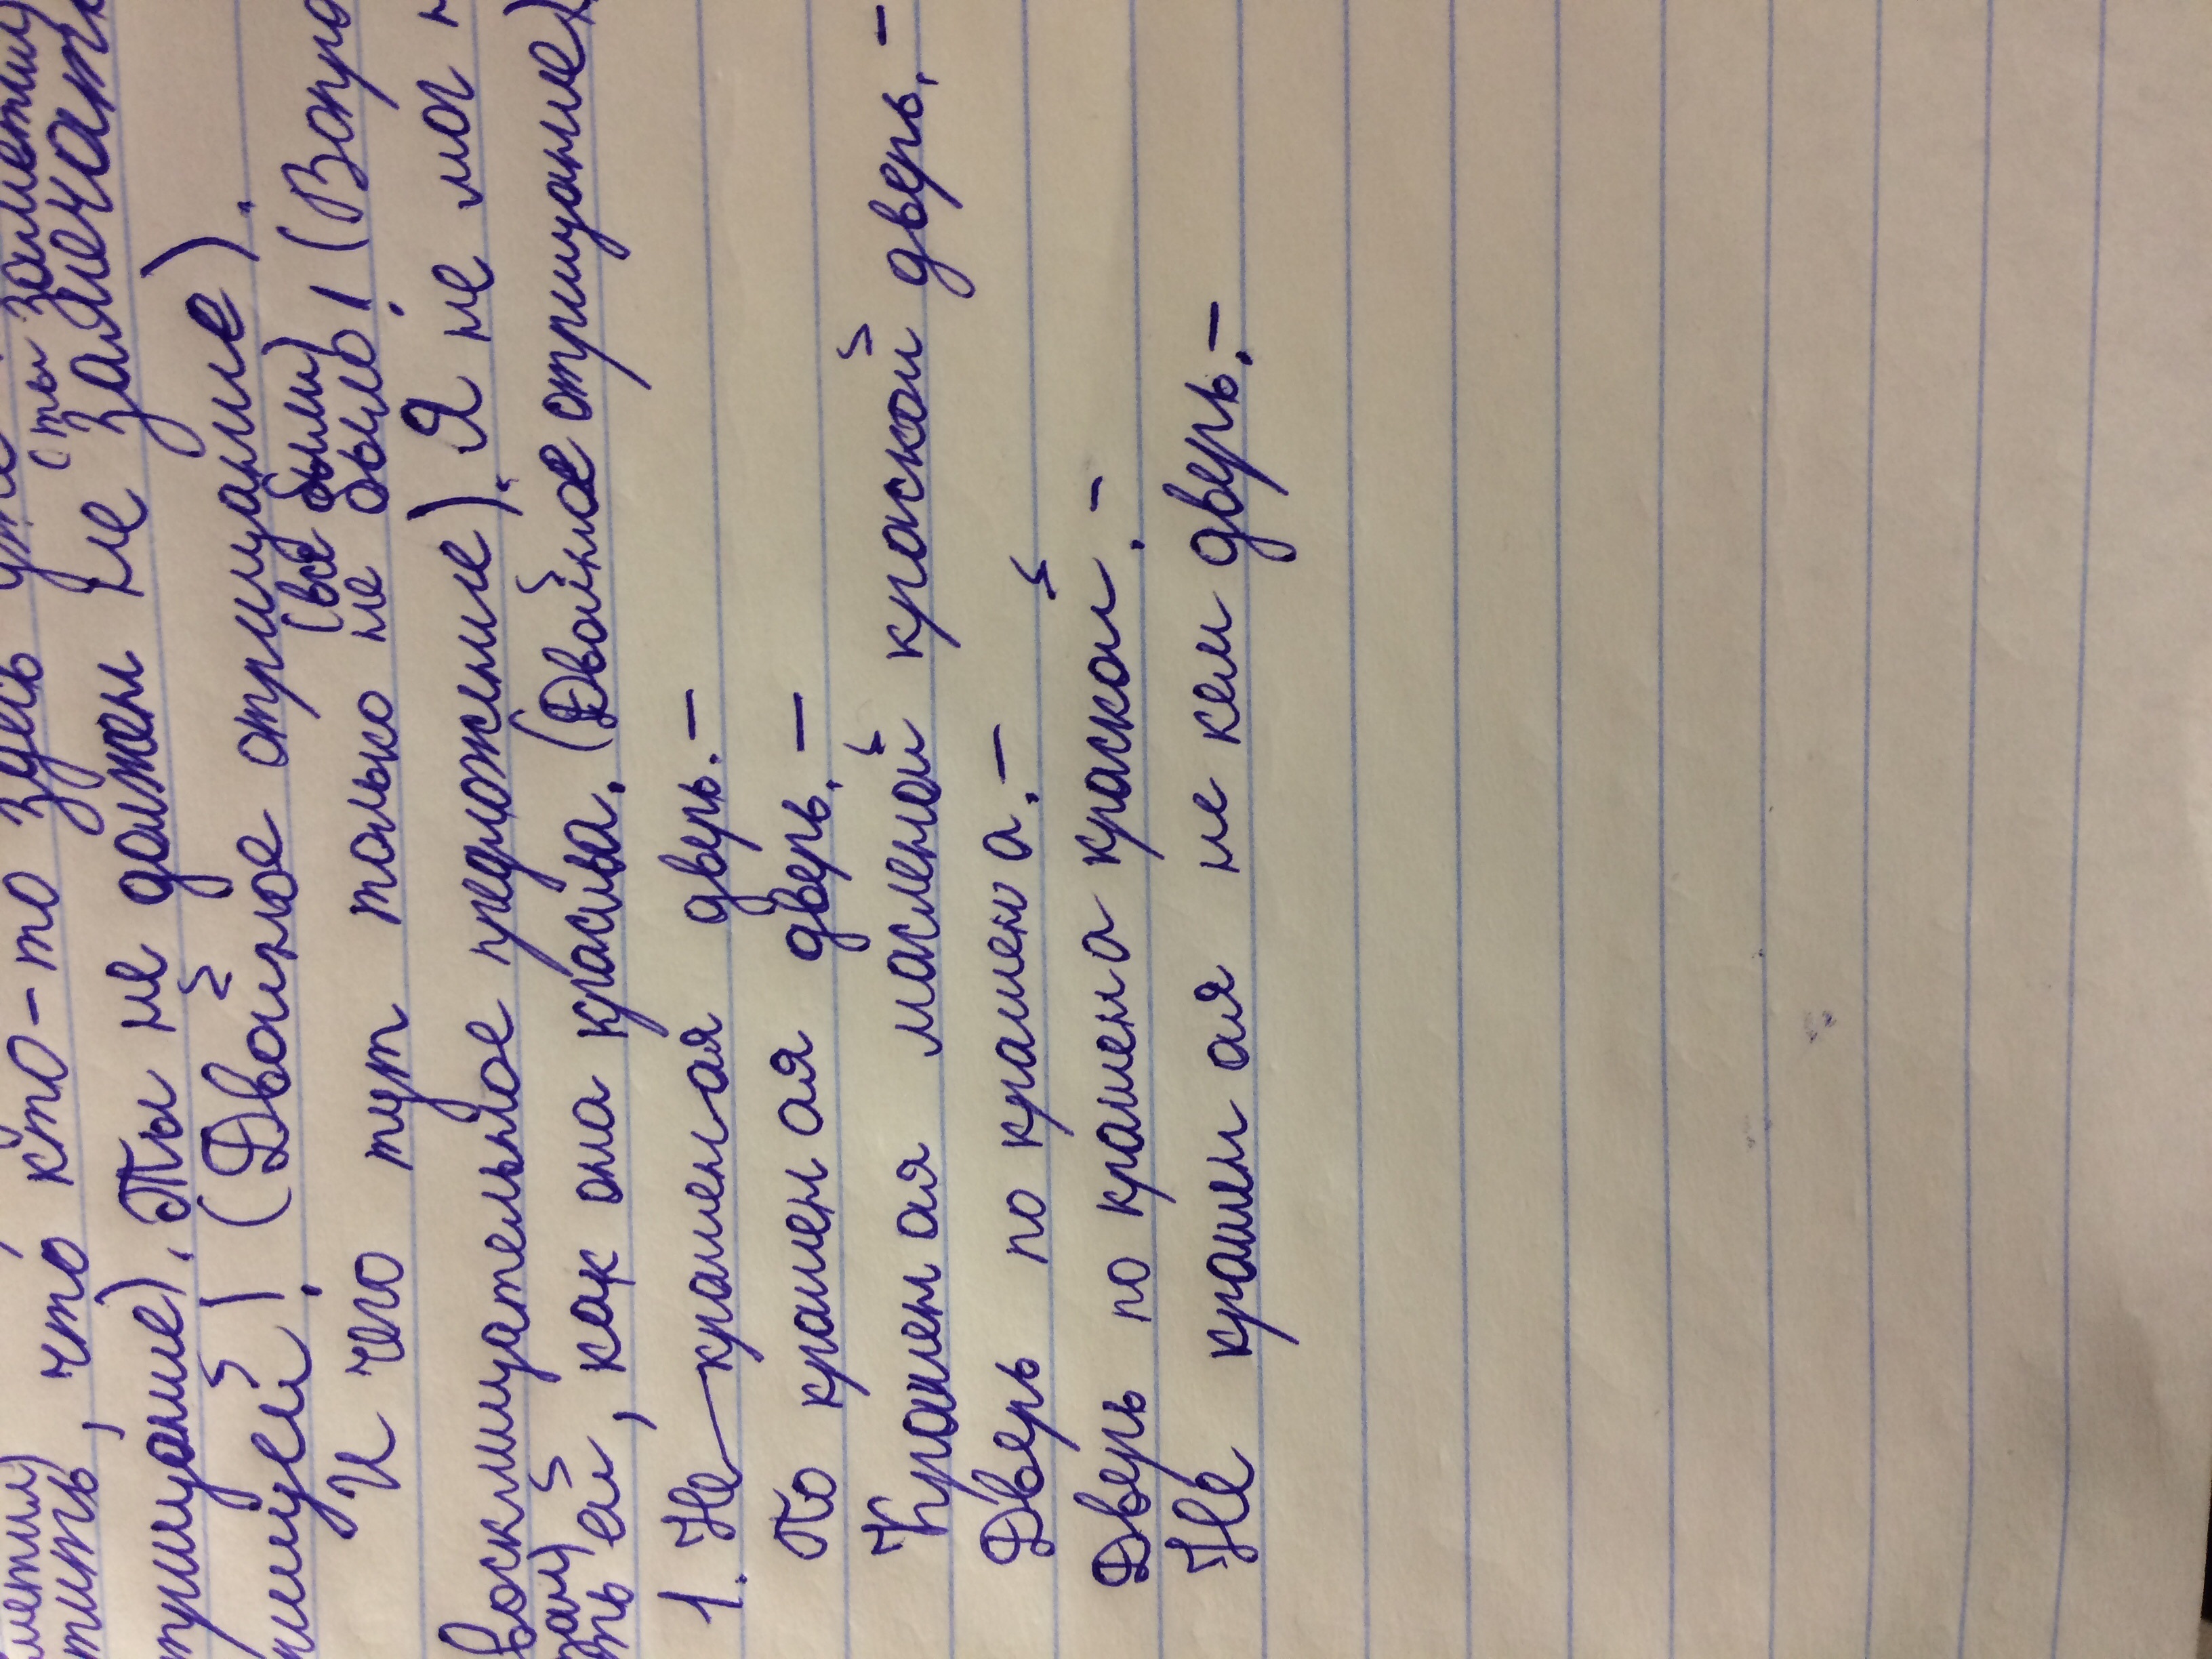 метил) что кто-то здесь (ты заметил)
тить, не замечать
трицание). Ты не должен не замечать
лицей! (Двойное отрицание).
(все были)
И чего тут только не было! (Вопро
восклицательное предложение). Я не мог н
ть ей, как она красива. (Двойное отрицание)
1. Не крашеная дверь. –
По крашен ая дверь. –
Крашен ая масленой краской дверь. –
Дверь по крашен а. –
Дверь по крашен а краской. –
Не крашен ая не кем дверь. –